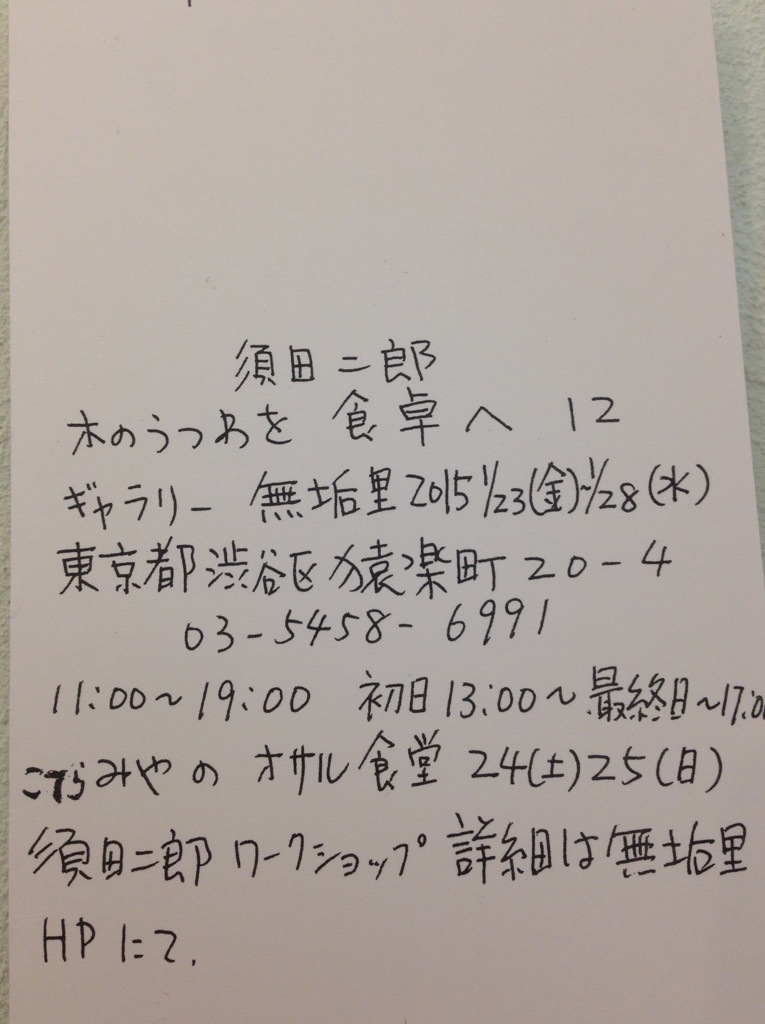 須田二郎
木のうつわを 食卓へ 12
ギャラリー 無垢里 2015 1/23(金)~1/28(水)
東京都渋谷区猿楽町20-4
03-5458-6991
11:00~19:00 初日13:00~最終日~17:00
みやの オサル食堂 24(土)25(日)
須田二郎 ワークショップ 詳細は無垢里
HPにて.